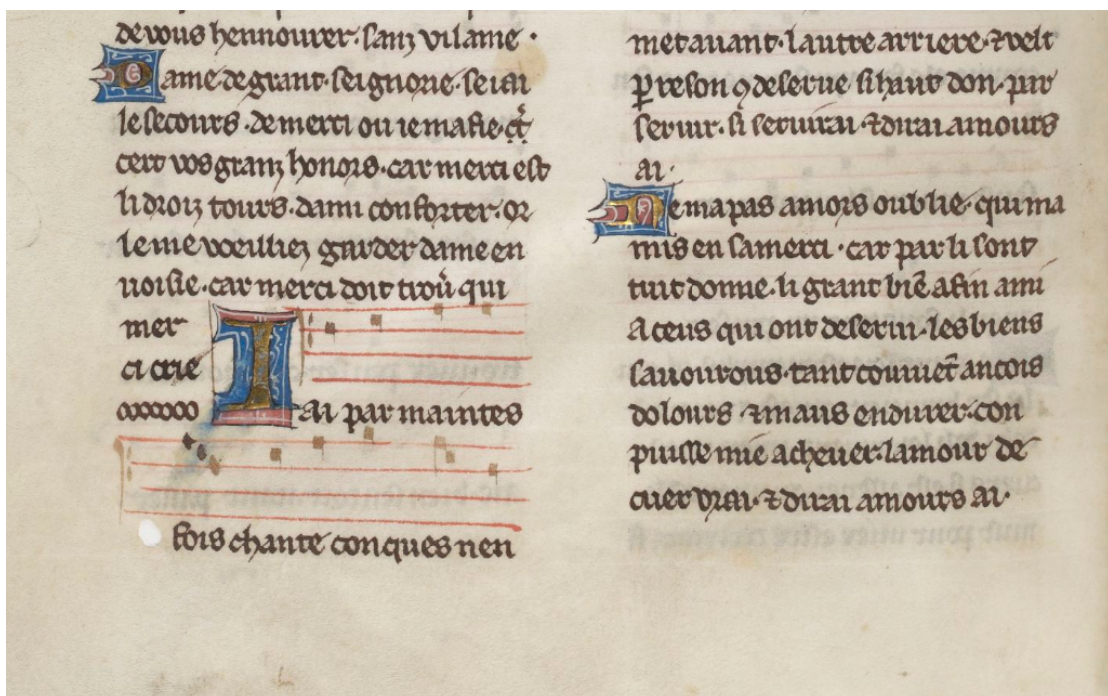 de vous hennourer. sanz vilame.
ame de grant. seignorie. se iai
le secours. de merci ou ie mafie. cr̃
cert vos granz honors. car merci est
li droiz tours. dami conforter. or
le me voeilliez garder dame en
voisie. car merci doit trouũ qui
mer
ci crie
ai par maintes
fois chante conques nen
met avant. lautre arriere. ⁊ velt
ꝑ reson ꝯ deserve si haut don. par
servir. si servirai ⁊ dirai amours
ai.
e ma pas amors oublie. qui ma
mis en sa merci. car par li sont
tuit donne. li grant biẽ a fin ami
A ceus qui ont deservi. les biens
savourous. tant couvient ancois
dolours. ⁊ maus endurer. con
puisse mie achever. lamour de
cuer vrai. ⁊ dirai amours ai.